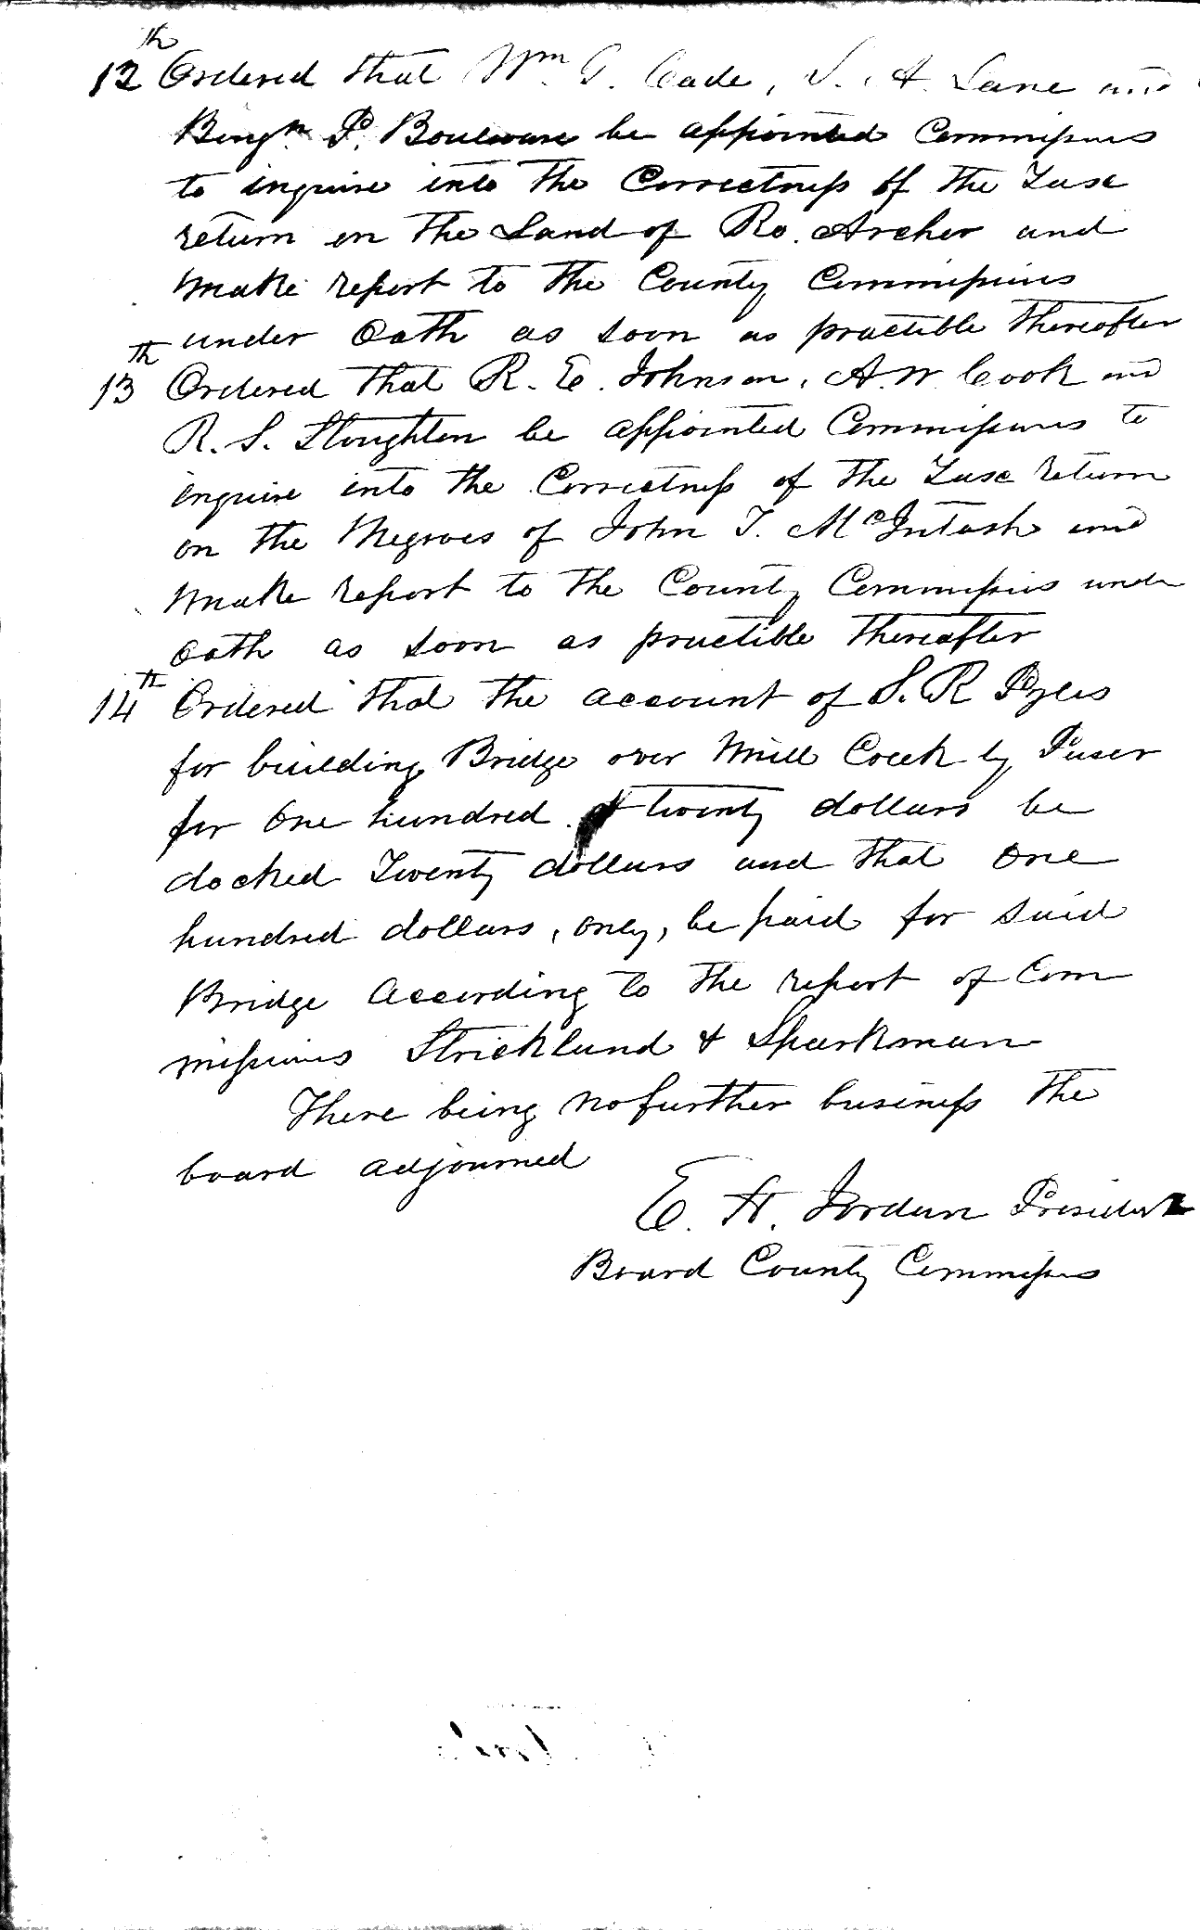 12th Ordered that Wm G. Cade, S. A. Lane and
Benjn P. Bouleware be appointed Commissners
to inquire into the Correctness of the Taxe
return on the Land of Ro. Archer and
make report to the County Commissiners
under Oath as soon as practible thereafter
13th Ordered that R. E. Johnson, A. W. Cook and
R. S. Stoughton be appointed Commissiners to
inquire into the Correctness of the Taxe return
on the Negroes of John T. McIntosh and
make report to the County Commissiners under
oath as soon as practible thereafter
14th Ordered that the account of S. R Pyles
for building Bridge over Mill Creek by
for One hundred & twenty dollars be
docked Twenty dollars and that one
hundred dollars, only, be paid for said
Bridge according to the report of Com
missiners Strickland & Sparkman
There being no further business the
board adjourned
E. H. Jordan President
Board County Commissners